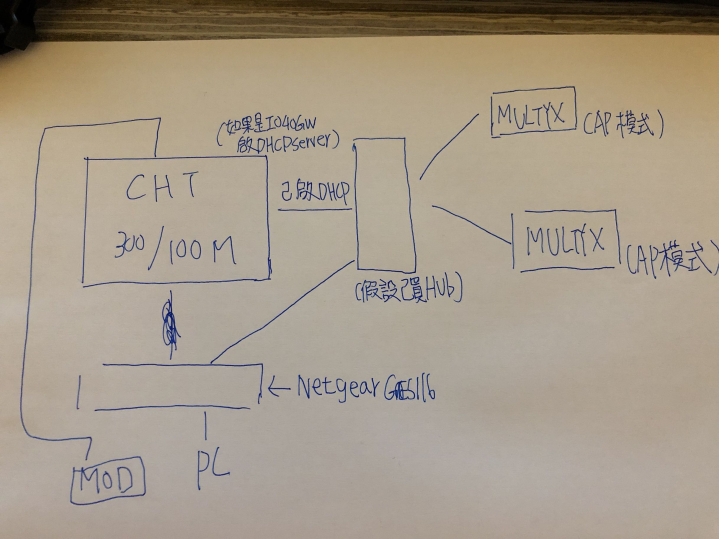 (如果是I040GW
啟DHCPserver)
CHT
300/100M
已啟DHCP
(假設已買Hub)
MULTYX (AP模式)
MULTYX (AP模式)
← Netgear GS116
PC
MOD